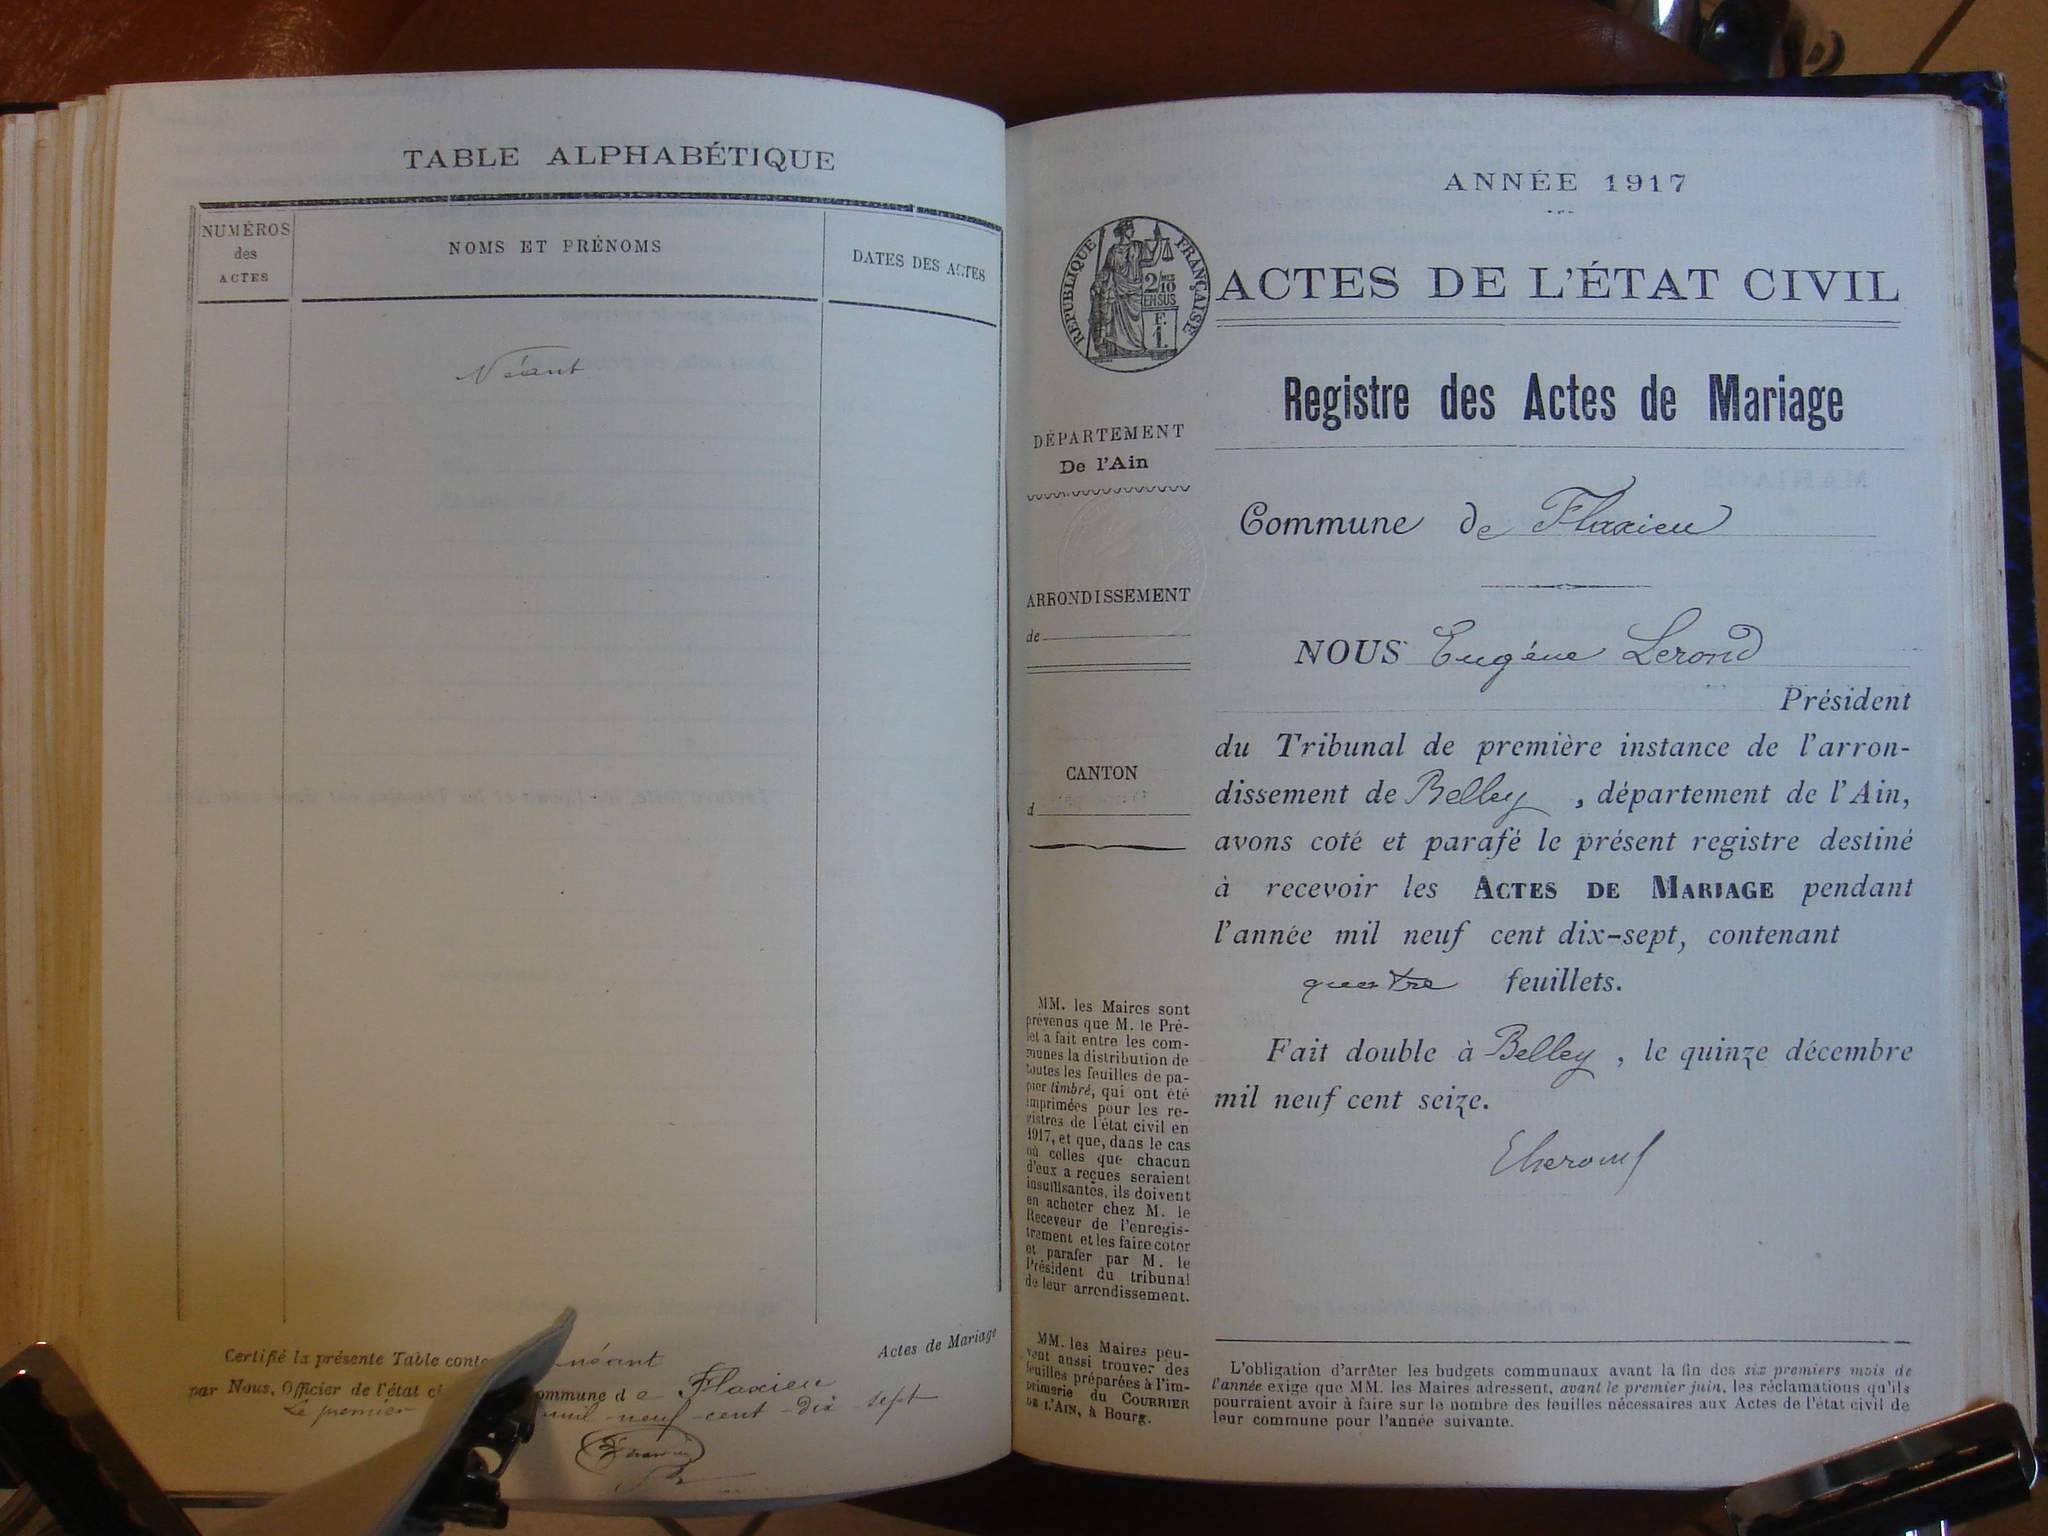 TABLE ALPHABÉTIQUE
NUMÉROS
des
ACTES
NOMS ET PRÉNOMS
DATES DES ACTES
Néant
Actes de Mariage
Certifié la présente Table conte néant
par Nous, Officier de l'état ci commune de Flaxieu
Le premier mil-neuf-cent-dix sept
ANNÉE 1917
RÉPUBLIQUE FRANÇAISE
2/10
EN SUS
F.
1.
ACTES DE L'ÉTAT CIVIL
Registre des Actes de Mariage
DÉPARTEMENT
De l'Ain
ARRONDISSEMENT
de
CANTON
d
MM. les Maires sont
prévenus que M. le Pré-
fet a fait entre les com-
munes la distribution de
toutes les feuilles de pa-
pier timbré, qui ont été
imprimées pour les re-
gistres de l'état civil en
1917, et que, dans le cas
où celles que chacun
d'eux a reçues seraient
insuffisantes, ils doivent
en acheter chez M. le
Receveur de l'enregis-
trement et les faire coter
et parafer par M. le
Président du tribunal
de leur arrondissement.
MM. les Maires peu-
vent aussi trouver des
feuilles préparées à l'im-
primerie du COURRIER
DE L'AIN, à Bourg.
Commune de Flaxieu
NOUS Eugène Lerond
Président
du Tribunal de première instance de l'arron-
dissement de Belley, département de l'Ain,
avons coté et parafé le présent registre destiné
à recevoir les ACTES DE MARIAGE pendant
l'année mil neuf cent dix-sept, contenant
quatre feuillets.
Fait double à Belley, le quinze décembre
mil neuf cent seize.
ELerond
L'obligation d'arrêter les budgets communaux avant la fin des six premiers mois de
l'année exige que MM. les Maires adressent, avant le premier juin, les réclamations qu'ils
pourraient avoir à faire sur le nombre des feuilles nécessaires aux Actes de l'état civil de
leur commune pour l'année suivante.